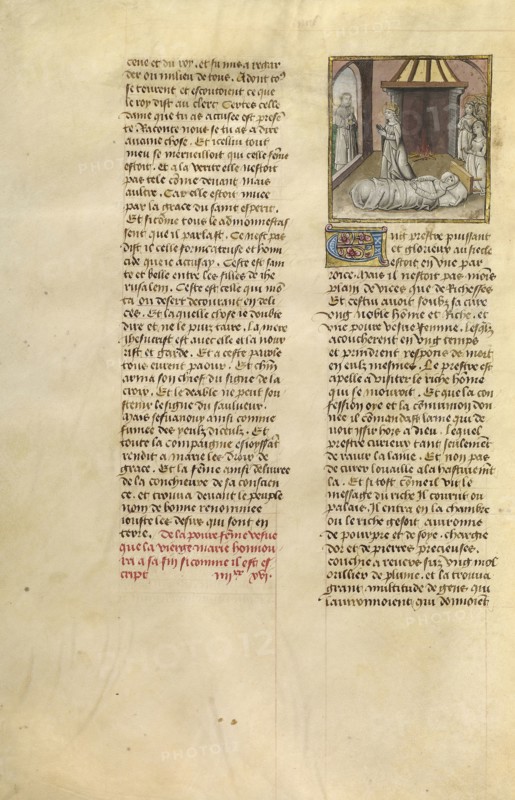 cene et du roy. et fu mis a regar
der ou milieu de tous. Adont to9
se teurent et escoutoient ce que
le roy dist au clerc Certes celle
dame que tu as accusee est presē
te. Raconte nous se tu as a dire
aucune chose. Et icellui tout
meu se merveilloit qui celle fēme
estoit. et a la verite elle nestoit
pas tele cōme devant mais
aultre. Car elle estoit muee
par la grace du saint esperit.
Et si cōme tous le admonnestas
sent que il parlast. Ce nest pas
dist il celle fornicateuse et hom
cide que ie accusay. Ceste est sain
te et belle entre les filles de ihe
rusalem. Ceste est celle qui mō
ta ou desert decourant en deli
ces. Et la quelle chose ie doubte
dire et ne le puis taire. La mere
ihesucrist est avec elle et la nour
rist et garde. Et a ceste parole
tous eurent paour. Et chūn
arma son chief du signe de la
croix. Et le deable ne peut sou
stenir le signe du saulveur.
Mais sesvanouy ainsi comme
fumee des yeulx diceulx. Et
toute la compaignie esioyssāt
rendit a marie les drois de
grace. Et la fēme ainsi delivree
de la conchieure de sa conscien
ce. et trouva devant le peuple
nom de bonne renommee
iouste les desirs qui sont en
terre. De la povre fēme vesve
que la vierge marie honnou
ra a sa fin si comme il est es
cript iiii xx xvi.
Ung prestre puissant
et glorieux au siecle
estoit en une par
roice. Mais il nestoit pas mois
plain de vices que de Richesses
Et cestui avoit soubz sa cure
ung noble hōme et Riche. et
une povre vesve femme. Lesqlz
acoucherent en ung temps
et prindrent respons de mort
en eulz mesmes. Le prestre est
apelle a visiter le riche hōme
qui se mouroit. Et que la con
fession oye et la cōmunion don
nee il cōmandast lame qui de
voit issir hors a dieu. lequel
prestre curieux tant seulement
de ravir la laine. Et non pas
de curer louaille
la. Et si tost cōme il vit le
message du riche Il courut ou
palais. Il entra en la chambre
ou le riche gesoit avironne
de pourpre et de soye. chargie
dor et de pierres precieuses.
couchie a revers sur ung mol
orillier de plume. et la trouva
grant multitude de gens qui
lavironnoient qui donnoient